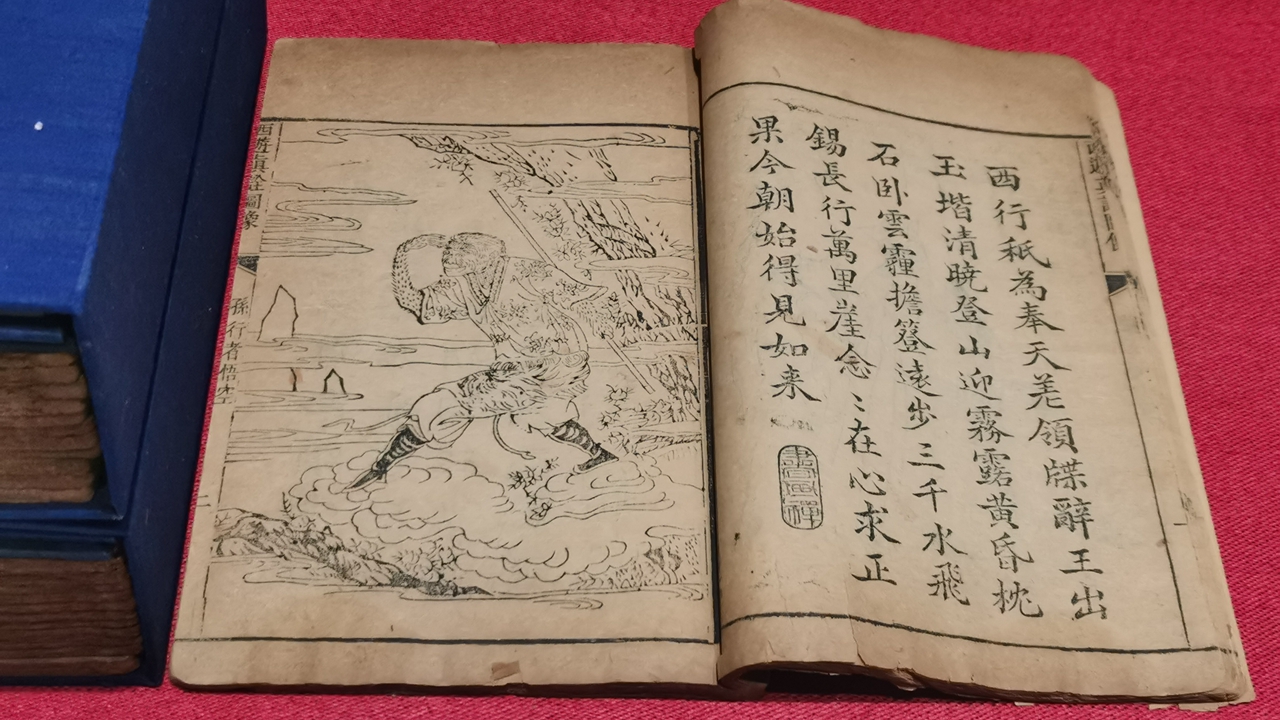 西行秖為奉天差領牒辭王出
玉堦清暁登山迎霧露黄昏枕
石卧雲霾擔簦遠步三千水飛
錫長行萬里崖念〻在心求正
果今朝始得見如来
書畫禪
西遊眞詮圖像
孫行者悟空
二